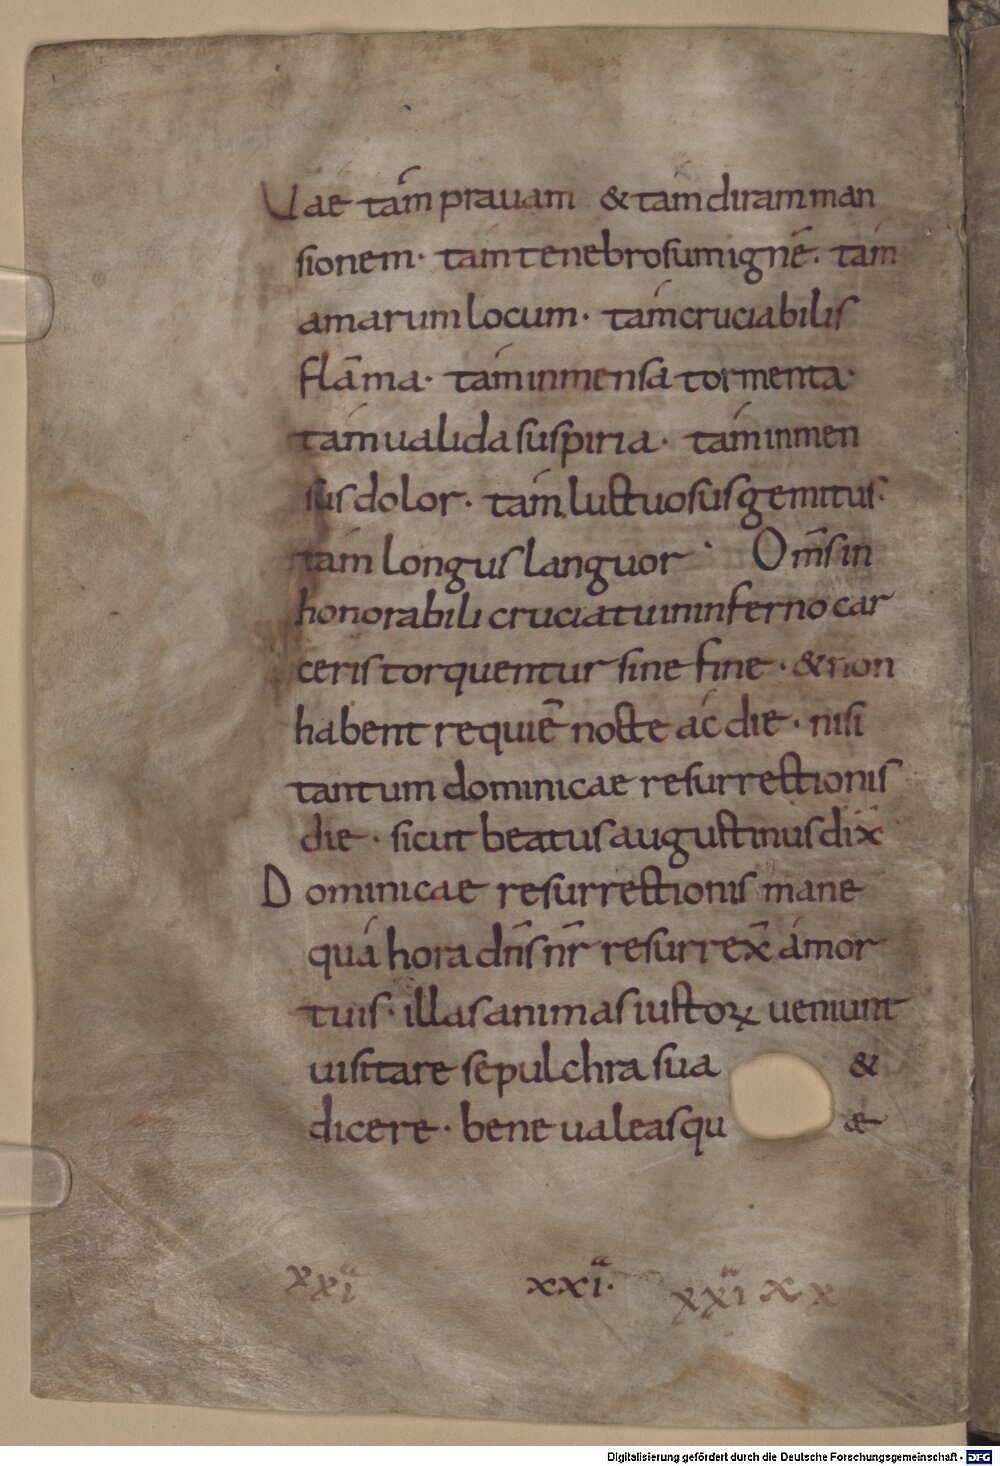 Uae tam prauam & tam diram man
sionem· tam tenebrosum ignē· tam
amarum locum· tam cruciabilis
flāma· tam inmensa tormenta·
tam ualida suspiria· tam inmen
sus dolor· tam luctuosus gemitus·
tam longus languor· Om̄s in
honorabili cruciatu in inferno car
ceris torquentur sine fine· & non
habent requiē nocte ac die· nisi
tantum dominicae resurrectionis
die· sicut beatus augustinus dix̄
Dominicae resurrectionis mane
qua hora dn̄s nr̄ resurrex̄ a mor
tuis· illas animas iustoꝝ ueniunt
uisitare sepulchra sua &
dicere· bene ualeas qu ae
xxiᵃ xxiᵃ· xxiᵃ xx
Digitalisierung gefördert durch die Deutsche Forschungsgemeinschaft - DFG